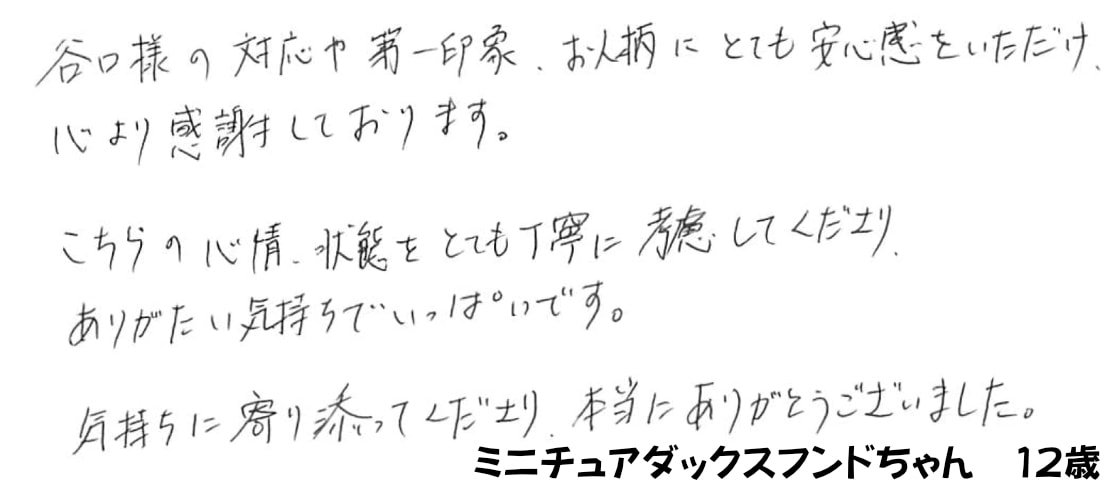 谷口様の対応や第一印象、お人柄にとても安心感をいただけ、
心より感謝しております。
こちらの心情、状態をとても丁寧に考慮してくださり、
ありがたい気持ちでいっぱいです。
気持ちに寄り添ってくださり、本当にありがとうございました。
ミニチュアダックスフンドちゃん　12歳